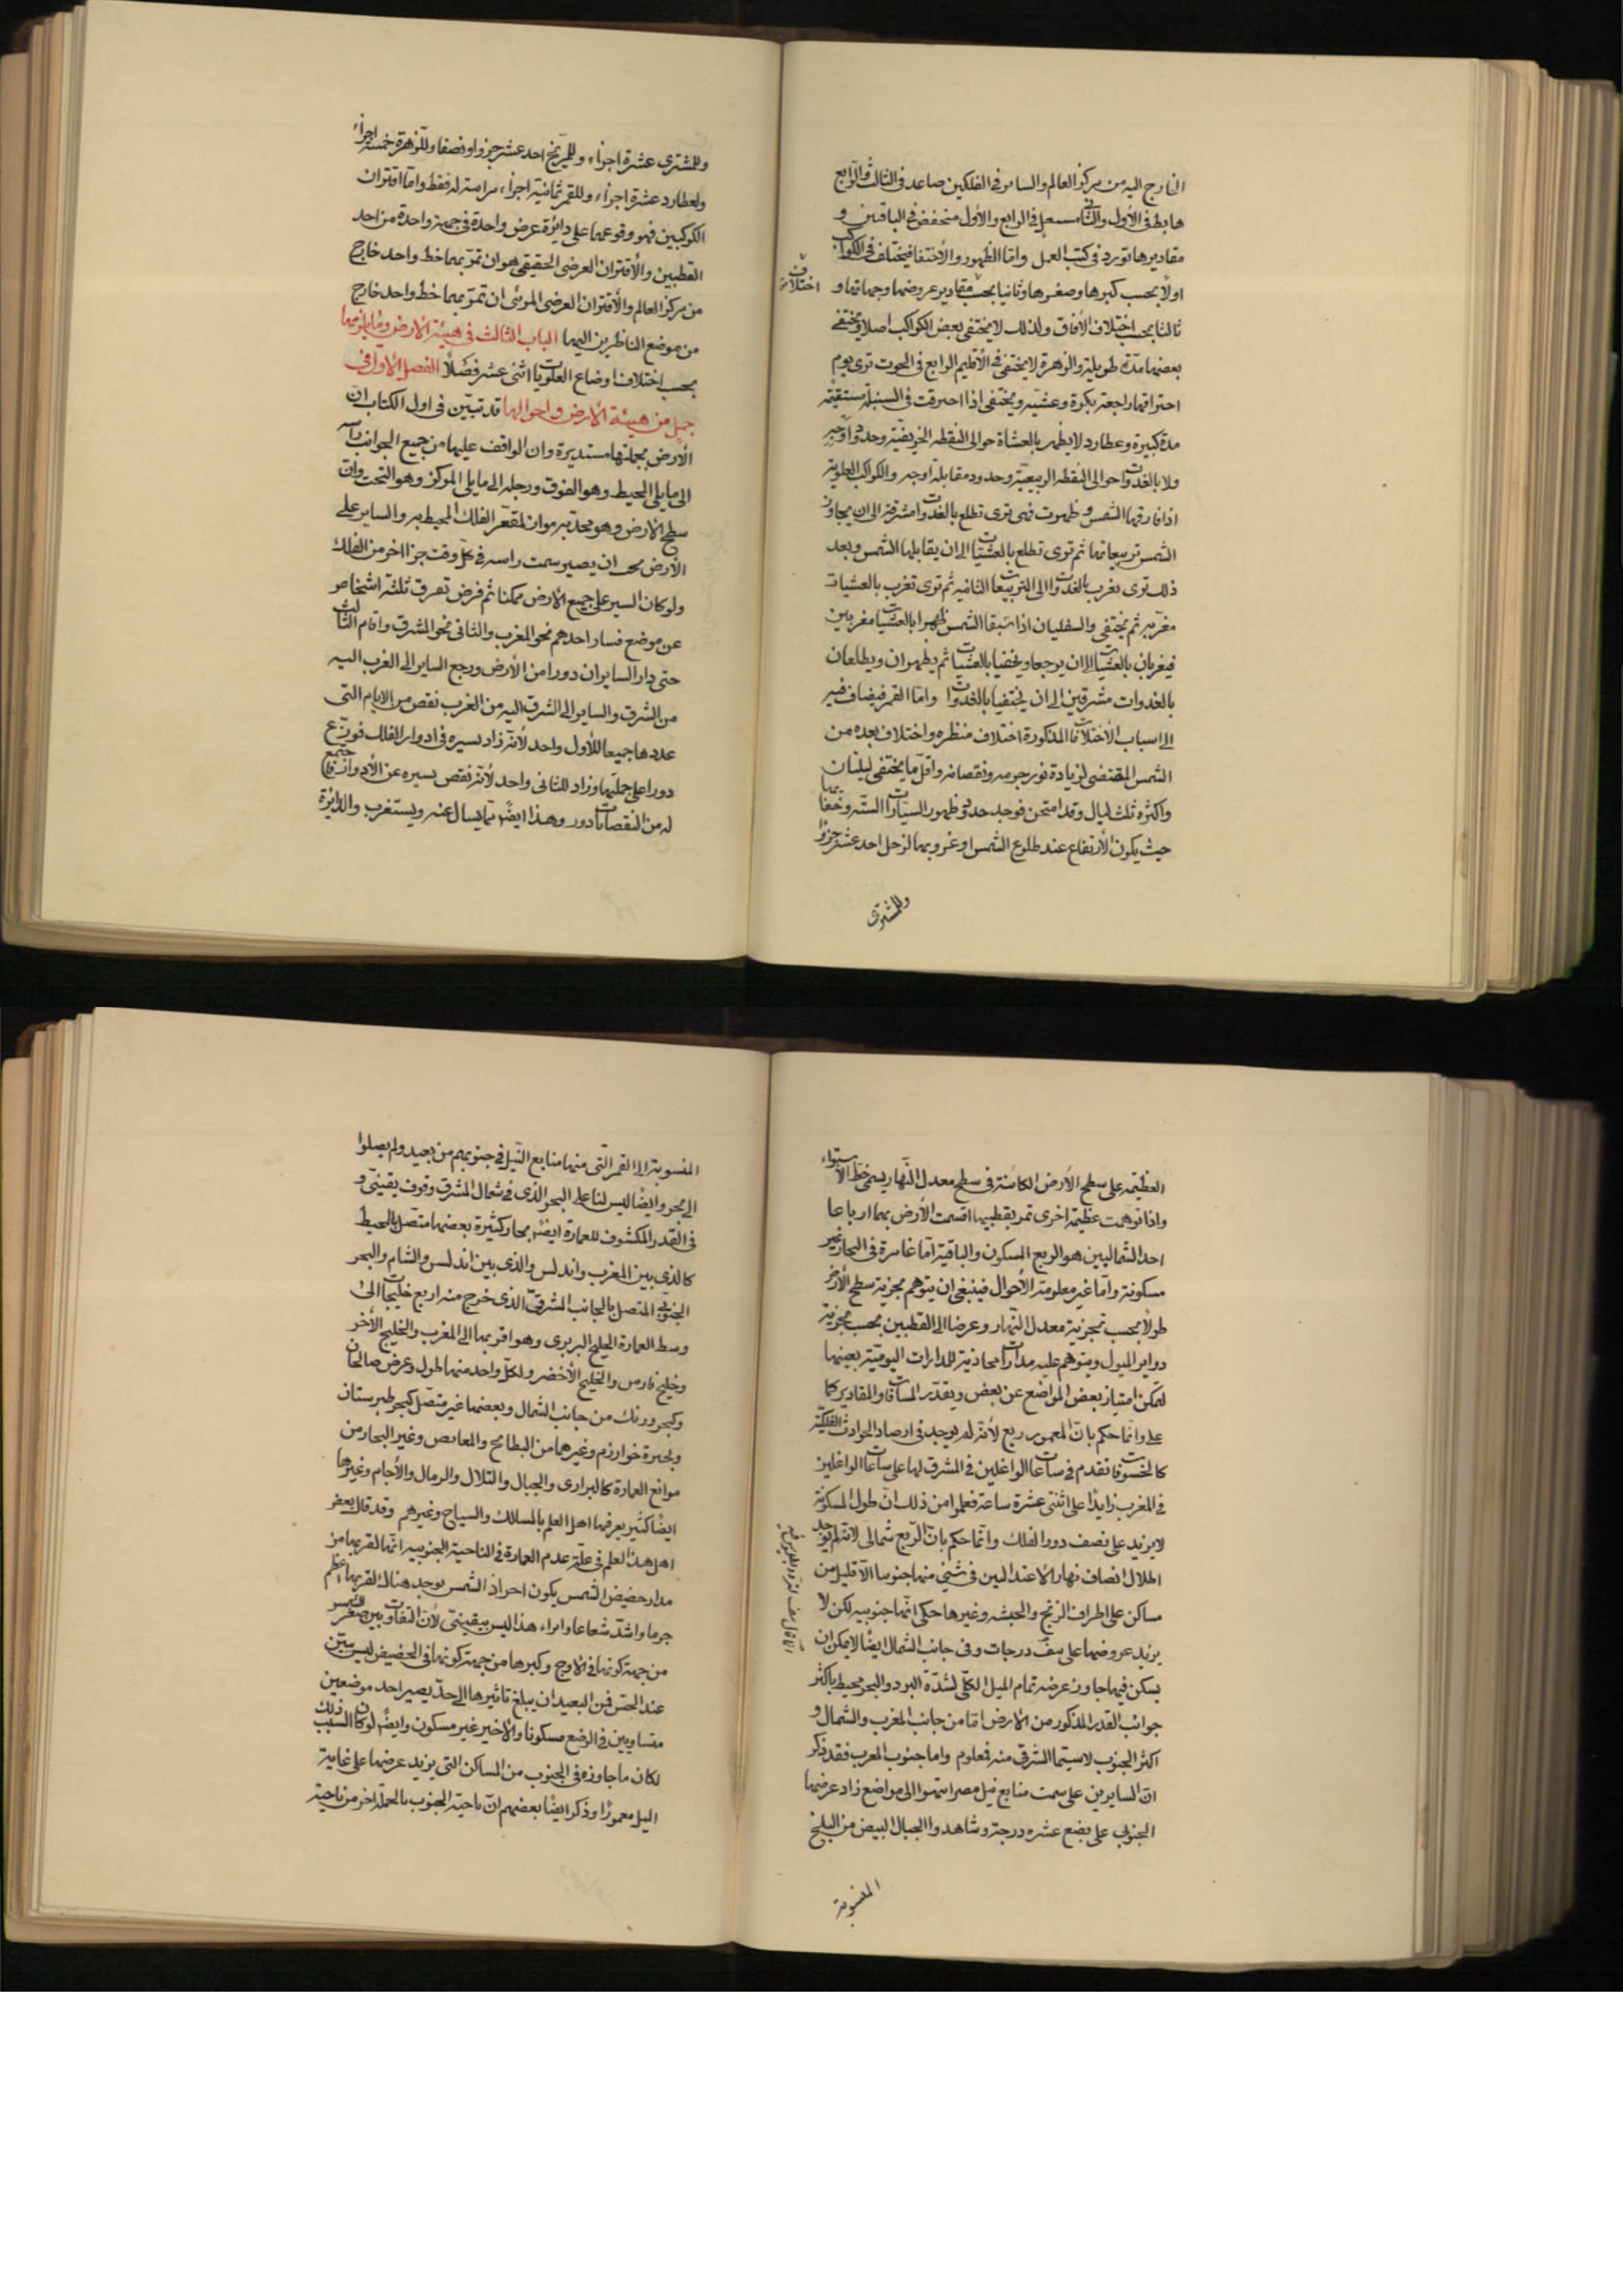 الخارج اليه من مركز العالم والساير في الفلكين صاعد في الثالث والرابع
هابط في الأول والثاني مستعل في الرابع والأول منخفض في الباقيين و
مقاديرها تورد في كتب العمل واما الظهور والأختفا فيختلف في الكواكب
اولاً بحسب كبرها وصغرها وثانيا بحسب مقادير عروضها وجهاتها و
اختلاف
ثالثا بحسب اختلاف الآفاق ولذلك لا يختفى بعض الكواكب اصلا ويختفي
بعضها مدة طويلة والزهرة لا يختفي في الأقليم الرابع في الحوت ترى يوم
احتراقها راجعة بكرة وعشية ويختفي اذا احترقت في السنبلة مستقيمة
مدة كبيرة وعطارد لا يظهر بالعشاة حوالى النقطه الخريفية وحدود اوجه
ولا بالغدوات حوالى النقطه الربيعية وحدود مقابلة اوجه والكواكب العلوية
اذا فارقتها الشمس وظهرت فهى ترى تطلع بالغدوات مشرقة الى ان يجاوز
الشمس تربيعاتها ثم ترى تطلع بالعشيات الى ان يقابلها الشمس وبعد
ذلك ترى تغرب بالغدوات الى التربيعات الثانيه ثم ترى تغرب بالعشيات
مغربه ثم يختفي والسفليان اذا سبقا الشمس ظهرا بالعشيات مغربين
فيغربان بالعشيات الى ان يرجعا ويخفيا بالعشيات ثم يظهران ويطلعان
بالغدوات مشرقين الى ان يختفيا بالغدوات واما القمر فيضاف فيه
الى اسباب الأختلافات المذكورة اختلاف منظره واختلاف بعده من
الشمس المقتضى لزيادة نور جرمه ونقصانه واقل ما يختفى ليلتان
واكثره ثلث ليال وقد امتحن فوجد حدود ظهور السيارات الستة وخفائها
حيث يكون الأرتفاع عند طلوع الشمس او غروبها لزحل احد عشر جزؤا
وللمشترى
وللمشترى عشرة اجزاء وللمريخ احد عشر جزوا ونصفا وللزهرة خمسة اجزاء
ولعطارد عشرة اجزاء وللقمر ثمانية اجزاء مراسته له فقط واما اقتران
الكوكبين فهو وقوعهما على دائرة عرض واحدة في جهة واحدة من احد
القطبين والأقتران العرضي الحقيقي هو ان تمر بهما خط واحد خارج
من مركز العالم والأقتران العرضى المرئى ان تمر بهما خط واحد خارج
من موضع الناظرين اليهما الباب الثالث فى هيئة الارض وما يلزمها
بحسب اختلاف اوضاع العلويات اثنى عشر فصلا الفصل الاول في
جمل من هيئة الارض واحوالها قد تبين في اول الكتاب ان
الأرض بجملتها مستديرة وان الواقف عليها من جميع الجوانب رأسه
الى ما يلي المحيط وهو الفوق ورجله الى ما يلي المركز وهو التحت وان
سطح الأرض وهو محدبه مواز لمقعر الفلك المحيط به والساير على
الأرض يجب ان يصير سمت راسه في كل وقت جزا اخر من الفلك
ولو كان السير على جميع الارض ممكنا ثم فرض تفرق ثلثة اشخاص
عن موضع فسار احدهم نحو المغرب والثانى نحو المشرق واقام الثالث
حتى دار السايران دورا من الأرض ورجع الساير الى الغرب اليه
من الشرق والساير الى الشرق اليه من الغرب نقص من الايام التى
عدد ها جميعا للأول واحد لأنه زاد بسيره في ادوار الفلك فوزع
دورا على جملتها وزاد للثانى واحد لأنه نقص بسيره عن الأدوار فاجتمع
له من النقصانات دور وهذا ايضا مما يسال عنه ويستغرب والدائرة
العظيمه على سطح الأرض الكائنة في سطح معدل النهار يسمى خط الأستواء
واذا توهمت عظيمة اخرى تمر بقطبيها اقسمت الأرض بهما ارباعا
احد الشماليين هو الربع المسكون والباقية اما غامرة في البحار غير
مسكونة واما غير معلومة الأحوال فينبغى ان يتوهم مجزية سطح الأرض
طولاً بحسب تجزية معدل النهار وعرضا الى القطبين بحسب تجزية
دواير الميول ويتوهم عليه مدارات محاذية للمدارات اليومية بعينها
لتمكن امتياز بعض المواضع عن بعض ويقدر المسافات والمقادير كما
على وانما حكم بان المعمور ربع لأنه لم يوجد في ارصاد الحوادث الفلكية
كالخسوفات تقدم في ساعات الواغلين في المشرق لها على ساعات الواغلين
في المغرب زايدا على اثنتى عشرة ساعة فعلموا من ذلك ان طول المسكونة
لا يزيد على نصف دور الفلك وانما حكم بان الربع شمالى لانه لم يوجد
اظلال انصاف نهار الاعتدالين في شئ منها جنوبيا الا قليل من
مساكن على اطراف الزنج والحبشه وغيرها حكى انها جنوبيه لكن لا
يزيد عروضها على درجات وفى جانب الشمال ايضا لا يمكن ان
يسكن فيها جاوز عرضه تمام الميل الكلي لشدة البرد والبحر محيط باكثر
جوانب القدر المذكور من الارض اما من جانب المغرب والشمال و
اكثر الجنوب لا سيما الشرقى منه فمعلوم واما جنوب المغرب فقد ذكر
ان السايرين على سمت منابع نيل مصر انتهوا الى مواضع زاد عرضها
الجنوبى على بضع عشره درجة وشاهدوا الجبال البيض من الثلج
المنسوبة
المنسوبة الى القمر التى منها منابع النيل في جنوبهم من بعيد ولم يصلوا
الى بحر وايضا ليس لنا على البحر الذى في شمال المشرق وقوف يقينى و
فى القدر المكشوف للعمارة ايضا بحار كثيرة بعضها متصل بالمحيط
كالذي بين المغرب واندلس والذى بين اندلس والشام والبحر
الجنوبى المتصل بالجانب الشرقى الذى خرج منه اربع خليجات الى
وسط العمارة الخليج البربرى وهو اقربها الى المغرب والخليج الأحمر
وخليج فارس والخليج الأخضر ولكل واحد منها طول وعرض صالحان
وكبحر ورنك من جانب الشمال وبعضها غير متصل كبحر طبرستان
وبحيرة خوارزم وغيرهما من البطائح والمغايص وغير البحار من
موانع العمارة كالبرارى والجبال والتلال والرمال والآجام وغيرها
ايضا كثير يعرفها اهل العلم بالمسالك والسياح وغيرهم وقد قال بعض
اهل هذا العلم في علة عدم العمارة في الناحية الجنوبيه انها لقربها من
مدار حضيض الشمس يكون احر اذ الشمس يوجد هناك لقربها اعظم
جرما واشد شعاعا وهذا ليس بيقينى لأن التفاوت بين صغر الشمس
من جهة كونها في الاوج وكبرها من جهة كونها في الحضيض ليس يتبين
عند الحس فمن البعيد ان يبلغ تاثيرها الى حد يصير احد موضعين
متساويين في الوضع مسكونا والأخير غير مسكون وايضا لو كان ذلك السبب
لكان ما جاوزه في الجنوب من المساكن التى يزيد عرضها على غاية
الميل معمورا وذكر ايضا بعضهم ان ناحية الجنوب بالجملة احر من ناحية